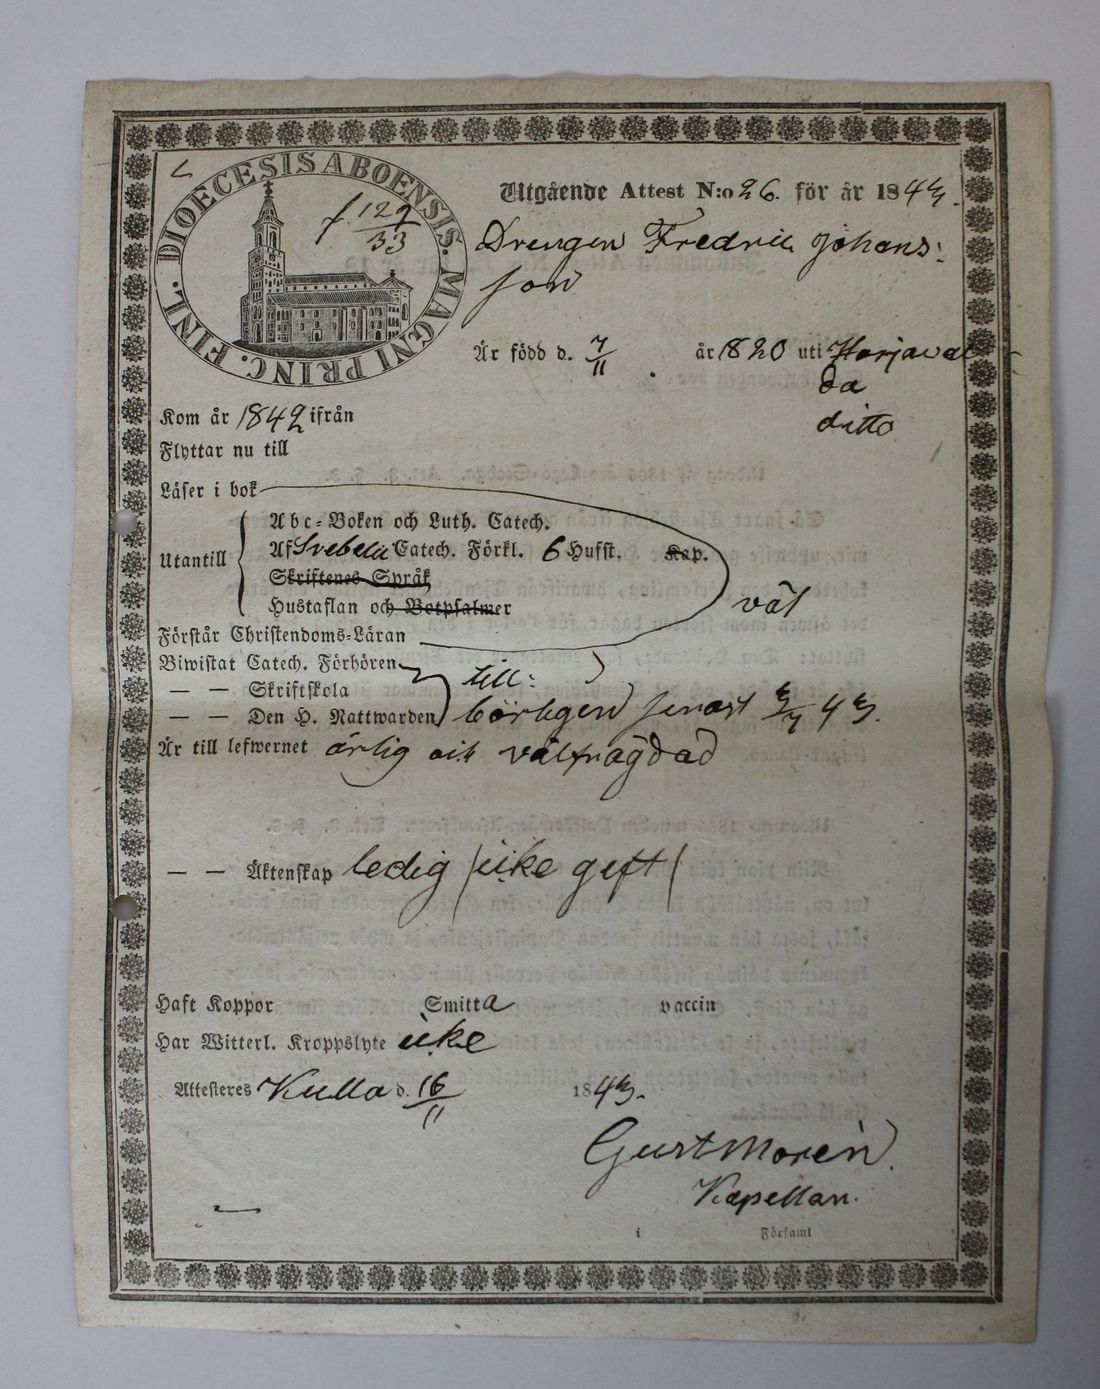 DIOECESIS ABOENSIS. MAGNI PRINC. FINL.
f 129/33
Utgående Attest N:o 26. för år 1843.
Drengen Fredric Johans:
son
Är född d. 7/11 år 1820 uti Harjaval
da
ditto
Kom år 1842 ifrån
Flyttar nu till
Läser i bok
Utantill
Abc-Boken och Luth. Catech.
Af Svebelii Catech. Förkl. 6 Hufst. Kap.
Skriftenes Språk
Hustaflan och Botpsalmer
väl
Förstår Christendoms-Läran
Biwistat Catech. Förhören
till:
— — Skriftskola
— — Den H. Nattwarden börligen senast 43.
Är till lefwernet ärlig och välfrägdad
— — Äktenskap ledig /icke gift/
Haft Koppor Smitta vaccin
Har Witterl. Kroppslyte icke
Attesteres Kulla d. 16/11 1843.
Gust Morén.
Kapellan.
i Församl